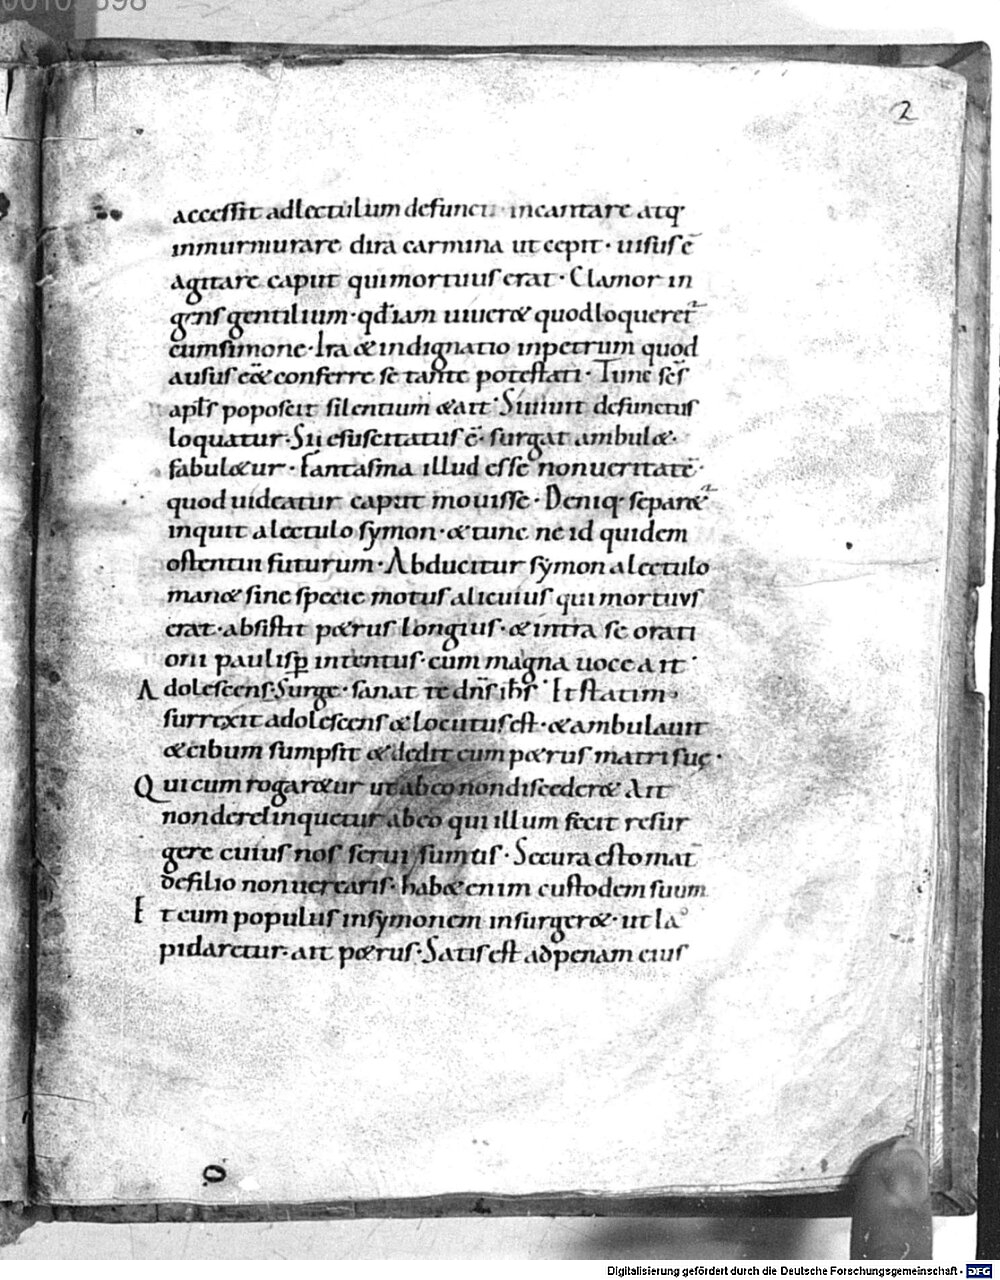 2
accessit ad lectulum defuncti · incantare atq·
inmurmurare dira carmina ut cepit · uisus ē
agitare caput qui mortuus erat · Clamor in
gens gentilium · qđ iam uiueret quod loqueret᷑
cum simone · Ira & indignatio in petrum quod
ausus eēt conferre se tante potestati · Tunc sc̄s
apl̄s poposcit silentium & ait · Si uiuit defunctus
loquatur · Si resuscitatus ē · surgat ambul&·
fabul&ur · Fantasma illud esse non ueritatē·
quod uideatur caput mouisse · Deniq· separet᷑
inquit a lectulo symon · & tunc ne id quidem
ostentui futurum · Abducitur symon a lectulo
man& sine specie motus alicuius qui mortuus
erat · absistit p&rus longius · & intra se orati
oni paulisꝑ intentus · cum magna uoce ait ·
Adolescens · Surge · sanat te dn̄s ih̄s · Et statim ·
surrexit adolescens & locutus est · & ambulauit
& cibum sumpsit & dedit eum p&rus matri suę ·
Qui cum rogar&ur ut ab eo non disceder& Ait
non derelinquetur ab eo qui illum fecit resur
gere cuius nos serui sumus · Secura esto mat̄
de filio non uerearis · hab& enim custodem suum
Et cum populus in symonem insurger& · ut la
pidaretur · ait p&rus · Satis est ad penam eius
Digitalisierung gefördert durch die Deutsche Forschungsgemeinschaft - DFG